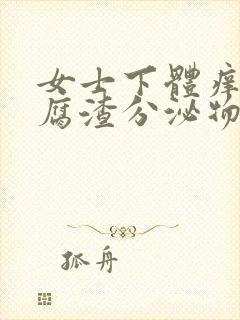 女士下體痒
腐渣分泌物
孤舟